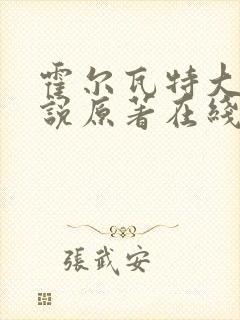 霍尔瓦特大
説原著在綫
張武安